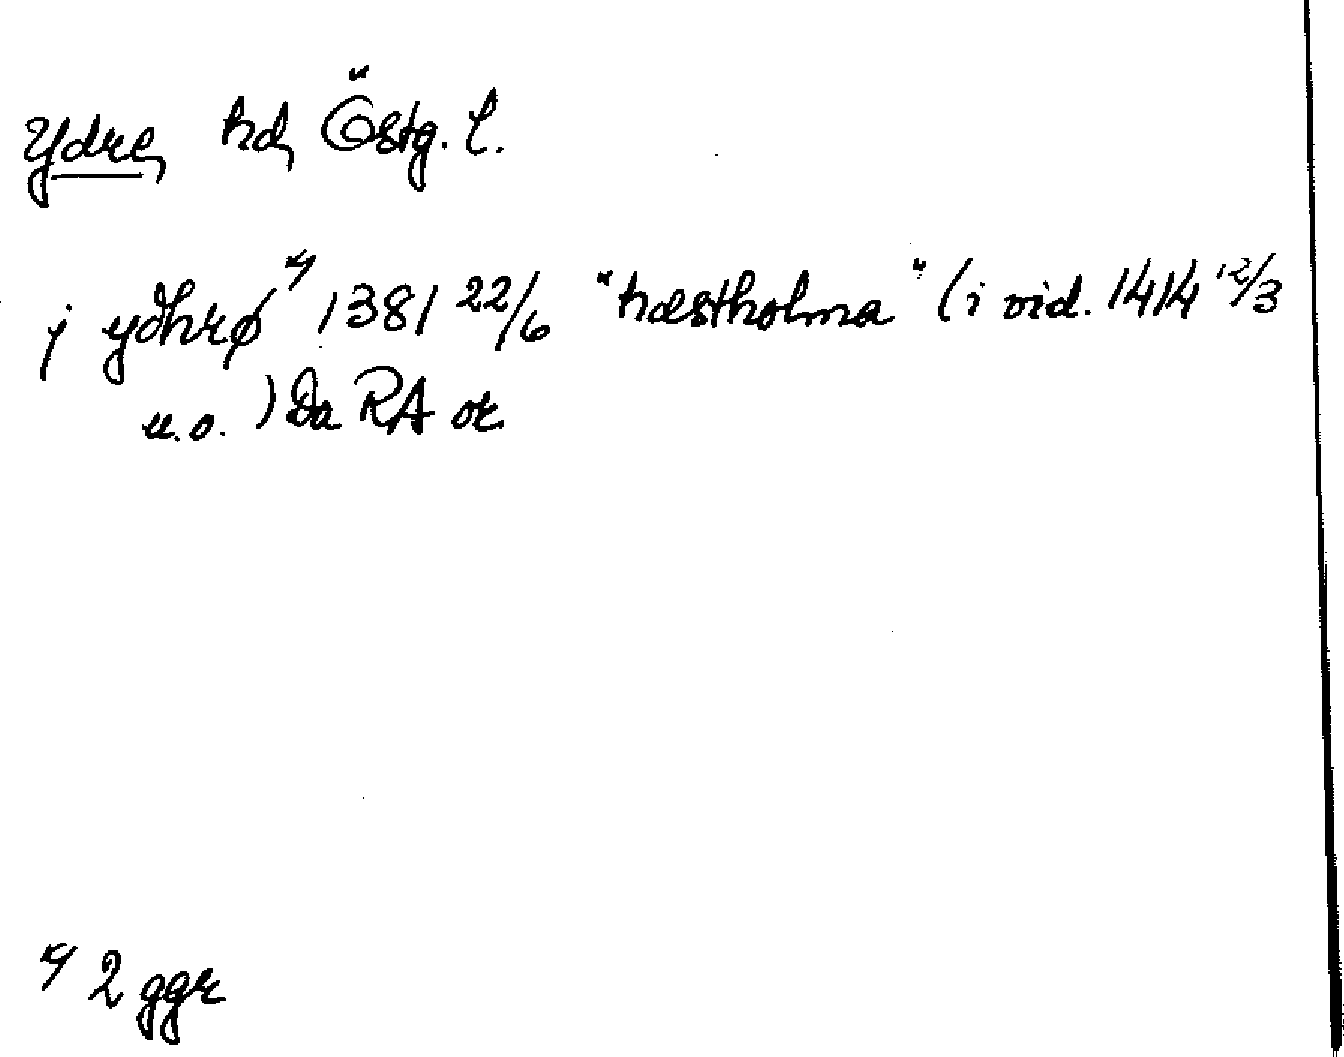 Ydre, hd, Östg. l.
j ydhrø ×) 1381 22/6 "hæstholma" (i vid. 1414 12/3
u.o.) Da RA or
×) 2 ggr